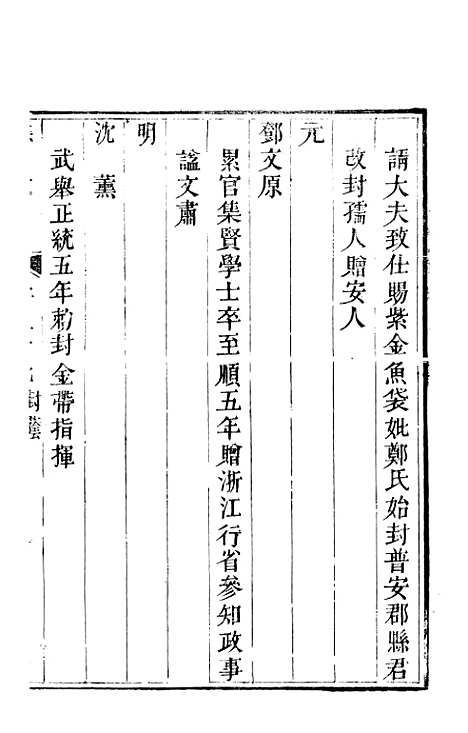 請大夫致仕賜紫金魚袋妣鄭氏始封普安郡縣君
改封孺人贈安人
元
鄧文原
累官集賢學士卒至順五年贈浙江行省參知政事
諡文肅
明
沈薰
武舉正統五年勑封金帶指揮
封蔭